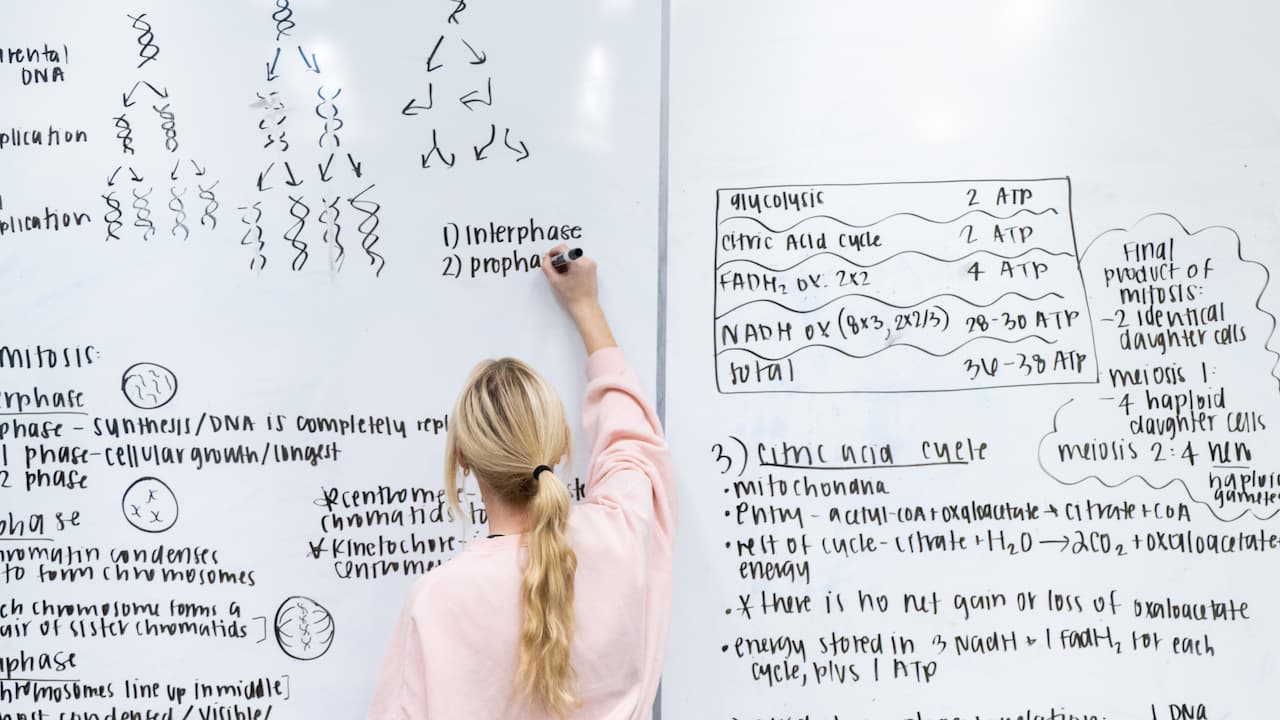 rental
DNA
plication
plication
1) Interphase
2) propha
mitosis:
erphase
phase - synthesis/DNA is completely repl
1 phase-cellular growth/longest
2 phase
phase
hromatin condenses
to form chromosomes
ch chromosome forms a
air of sister chromatids]
aphase
hromosomes line up in middle]
most condensed/visible/
*centrome
chromatids to
*Kinetochore-
centrome
glycolysis 2 ATP
citric Acid cycle 2 ATP
FADH₂ ox. 2x2 4 ATP
NADH ox (8x3, 2x2/3) 28-30 ATP
total 36-38 ATP
Final
product of
mitosis:
-2 identical
daughter cells
meiosis 1:
-4 haploid
daughter cells
meiosis 2: 4 new
haploid
gametes
3) Citric acid cycle
•mitochondria
•entry - acetyl-coA+oxaloacetate→citrate+CoA
•rest of cycle-citrate+H₂O→2CO₂+oxaloacetate+
energy
•* there is no net gain or loss of oxaloacetate
•energy stored in 3 NadH + 1 FadH₂ for each
cycle, plus 1 ATP
1 DNA